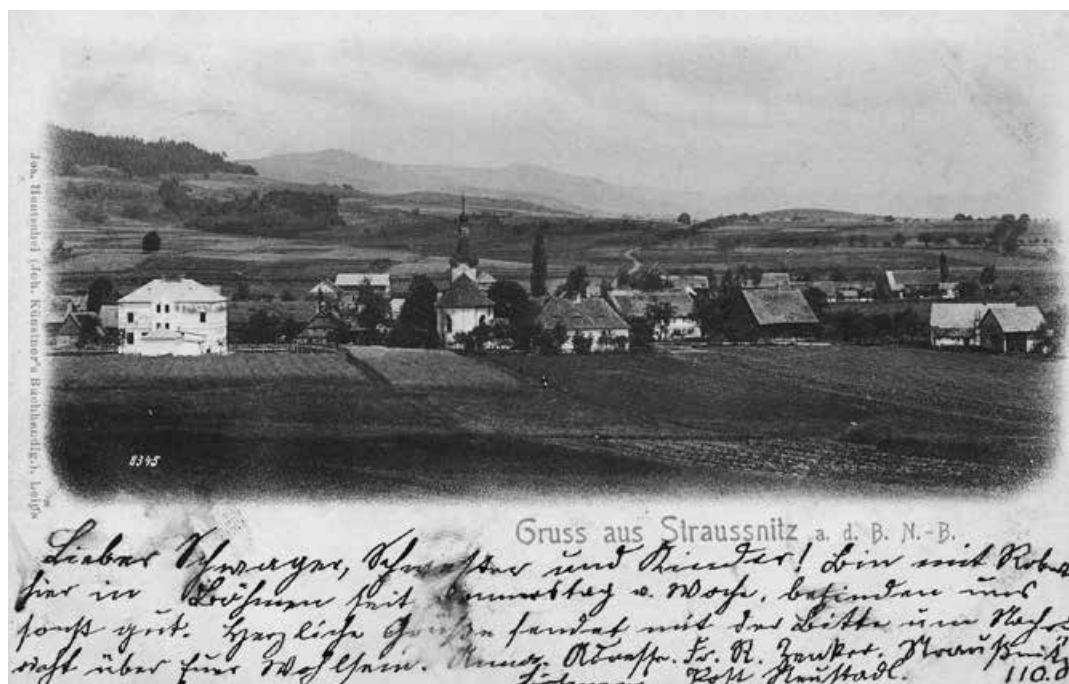 Joh. Künstner's Buchhandlg.), Leipa
8345
Gruss aus Straussnitz a. d. B. N.-B.
Lieber Schwager, Schwester und Kinder! Bin mit Robert
hier in Böhmen seit Donnerstag v. Woche, befinden uns
sonst gut. Herzliche Grüße sendet mit der Bitte um Nach-
richt über Euer Wohlsein. Anna. Adresse. Fr. R. Zenker. Straußnitz
Post Neustadl. 110.